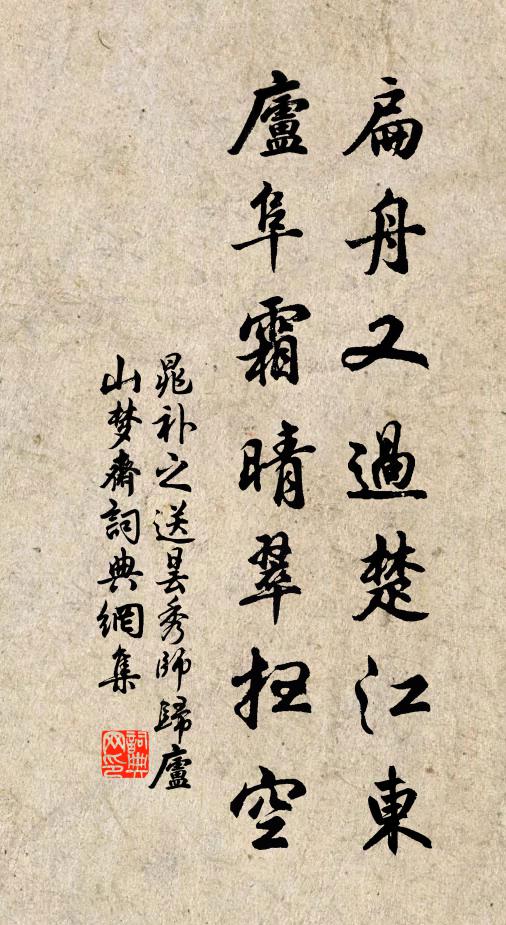 扁舟又過楚江東
廬阜霜晴翠扫空
晁补之送曇秀師歸廬
山梦齋詞典網集
詞典
网印